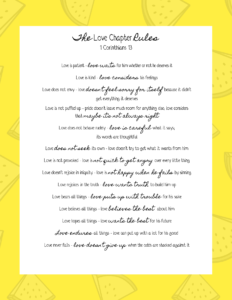 The Love Chapter Rules
1 Corinthians 13
Love is patient - love waits for him whether or not he deserves it.
Love is kind - love considers his feelings.
Love does not envy - love doesn't feel sorry for itself because it didn't
get everything it deserves.
Love is not puffed up - pride doesn't leave much room for anything else, love considers
that maybe it's not always right.
Love does not behave rudely - love is careful what it says,
its words are thoughtful.
Love does not seek its own - love doesn't try to get what it wants from him.
Love is not provoked - love is not quick to get angry over every little thing.
Love doesn't rejoice in iniquity - love is not happy when he fails by sinning.
Love rejoices in the truth - love wants truth to build him up.
Love bears all things - love puts up with trouble for his sake.
Love believes all things - love believes the best about him.
Love hopes all things - love wants the best for his future.
Love endures all things - love can put up with a lot for its good!
Love never fails - love doesn't give up when the odds are stacked against it.